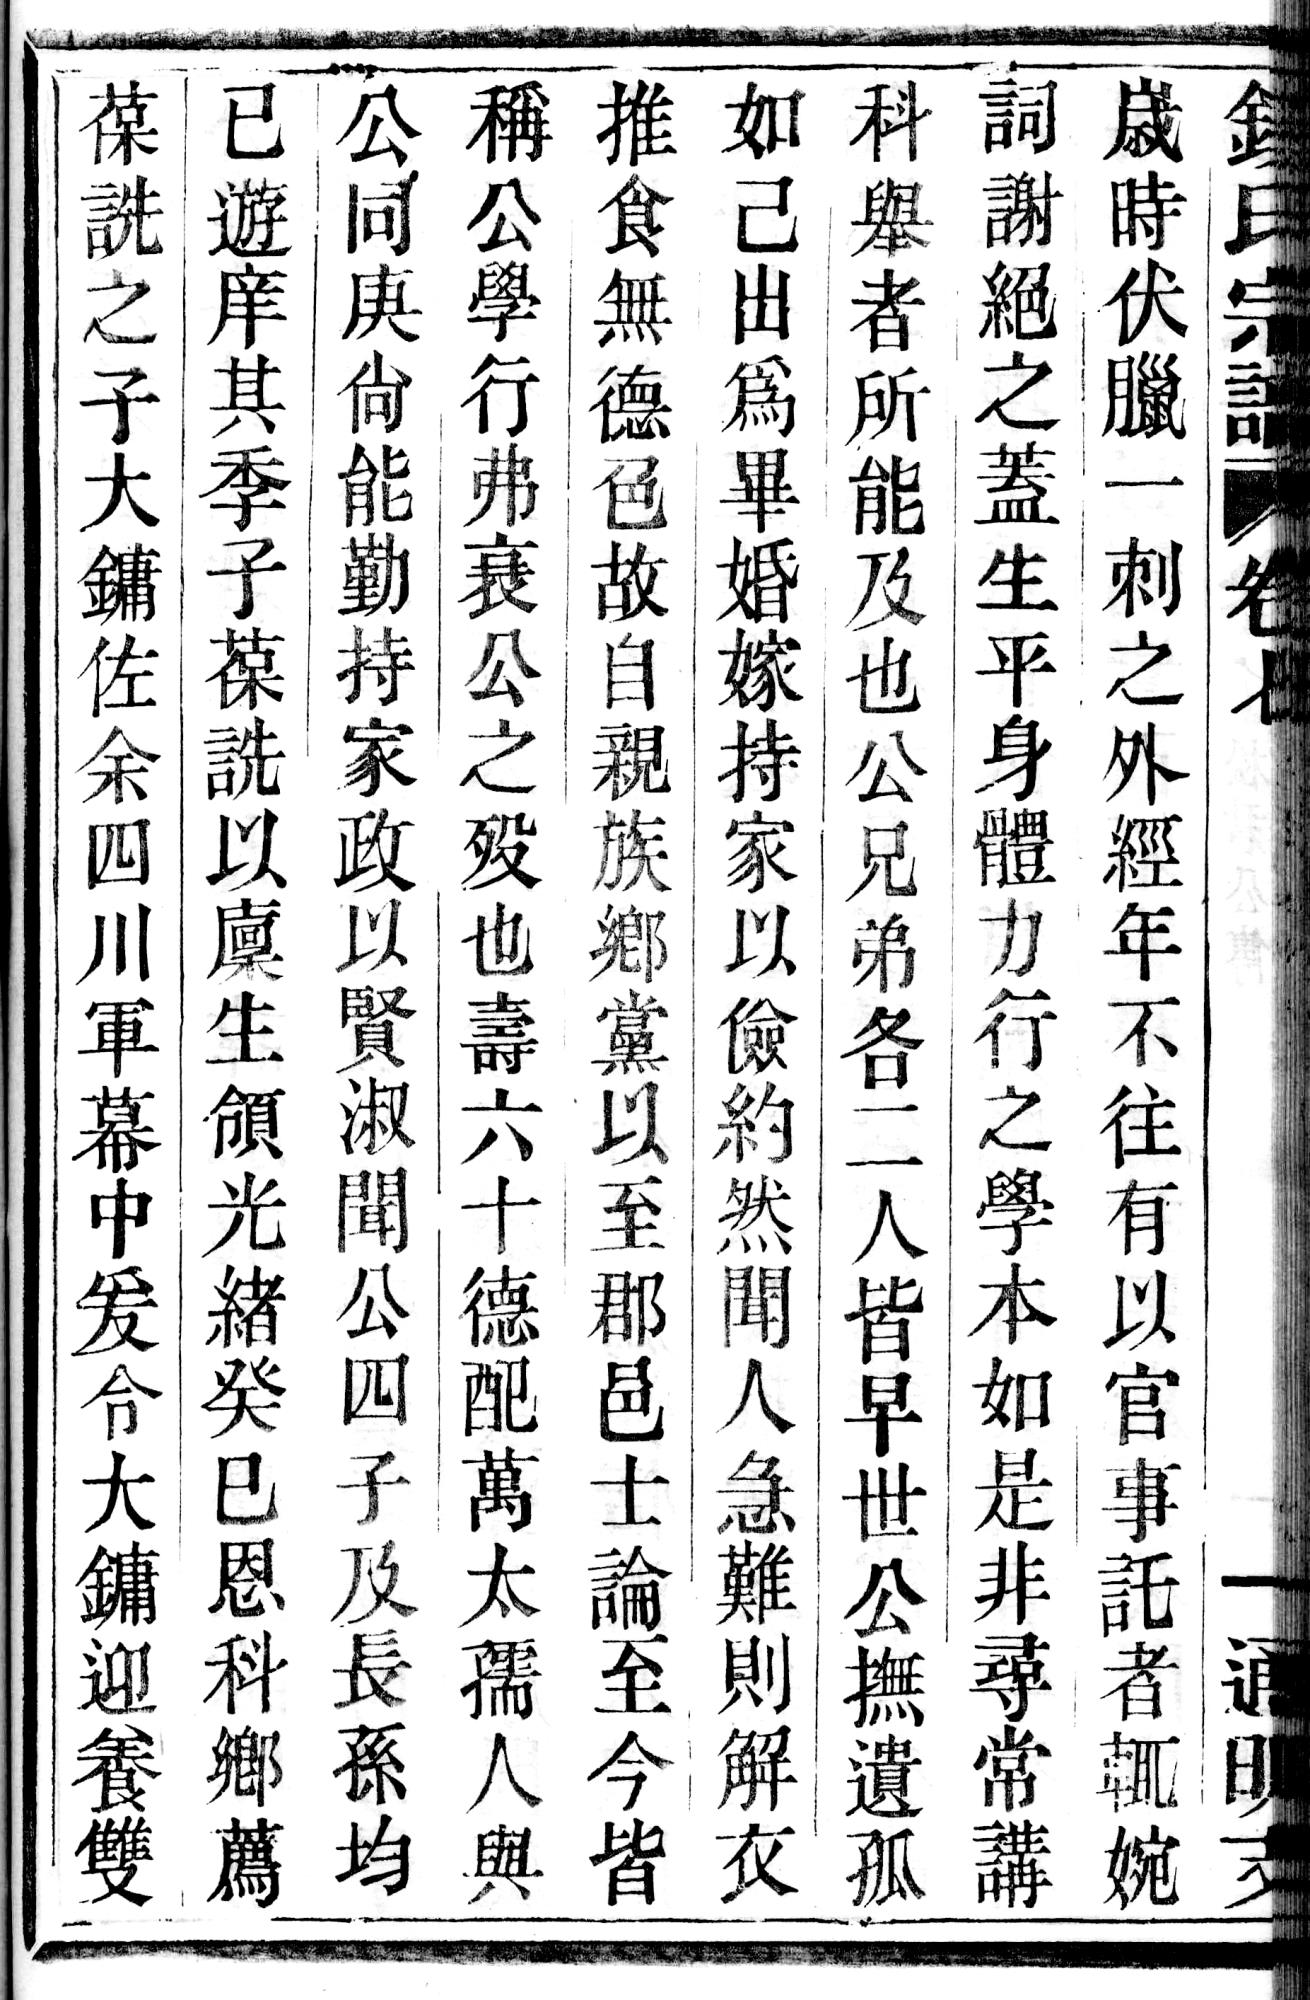 氏宗譜 卷七 一 通明
歲時伏臘一刺之外經年不往有以官事託者輒婉
詞謝絕之蓋生平身體力行之學本如是非尋常講
科舉者所能及也公兄弟各二一人皆早世公撫遺孤
如己出爲畢婚嫁持家以儉約然聞人急難則解衣
推食無德色故自親族鄉黨以至郡邑士論至今皆
稱公學行弗衰公之歿也壽六十德配萬太孺人與
公同庚尙能勤持家政以賢淑聞公四子及長孫均
已遊庠其季子葆詵以廩生領光緒癸巳恩科鄉薦
葆詵之子大鏞佐余四川軍幕中爰令大鏞迎養雙